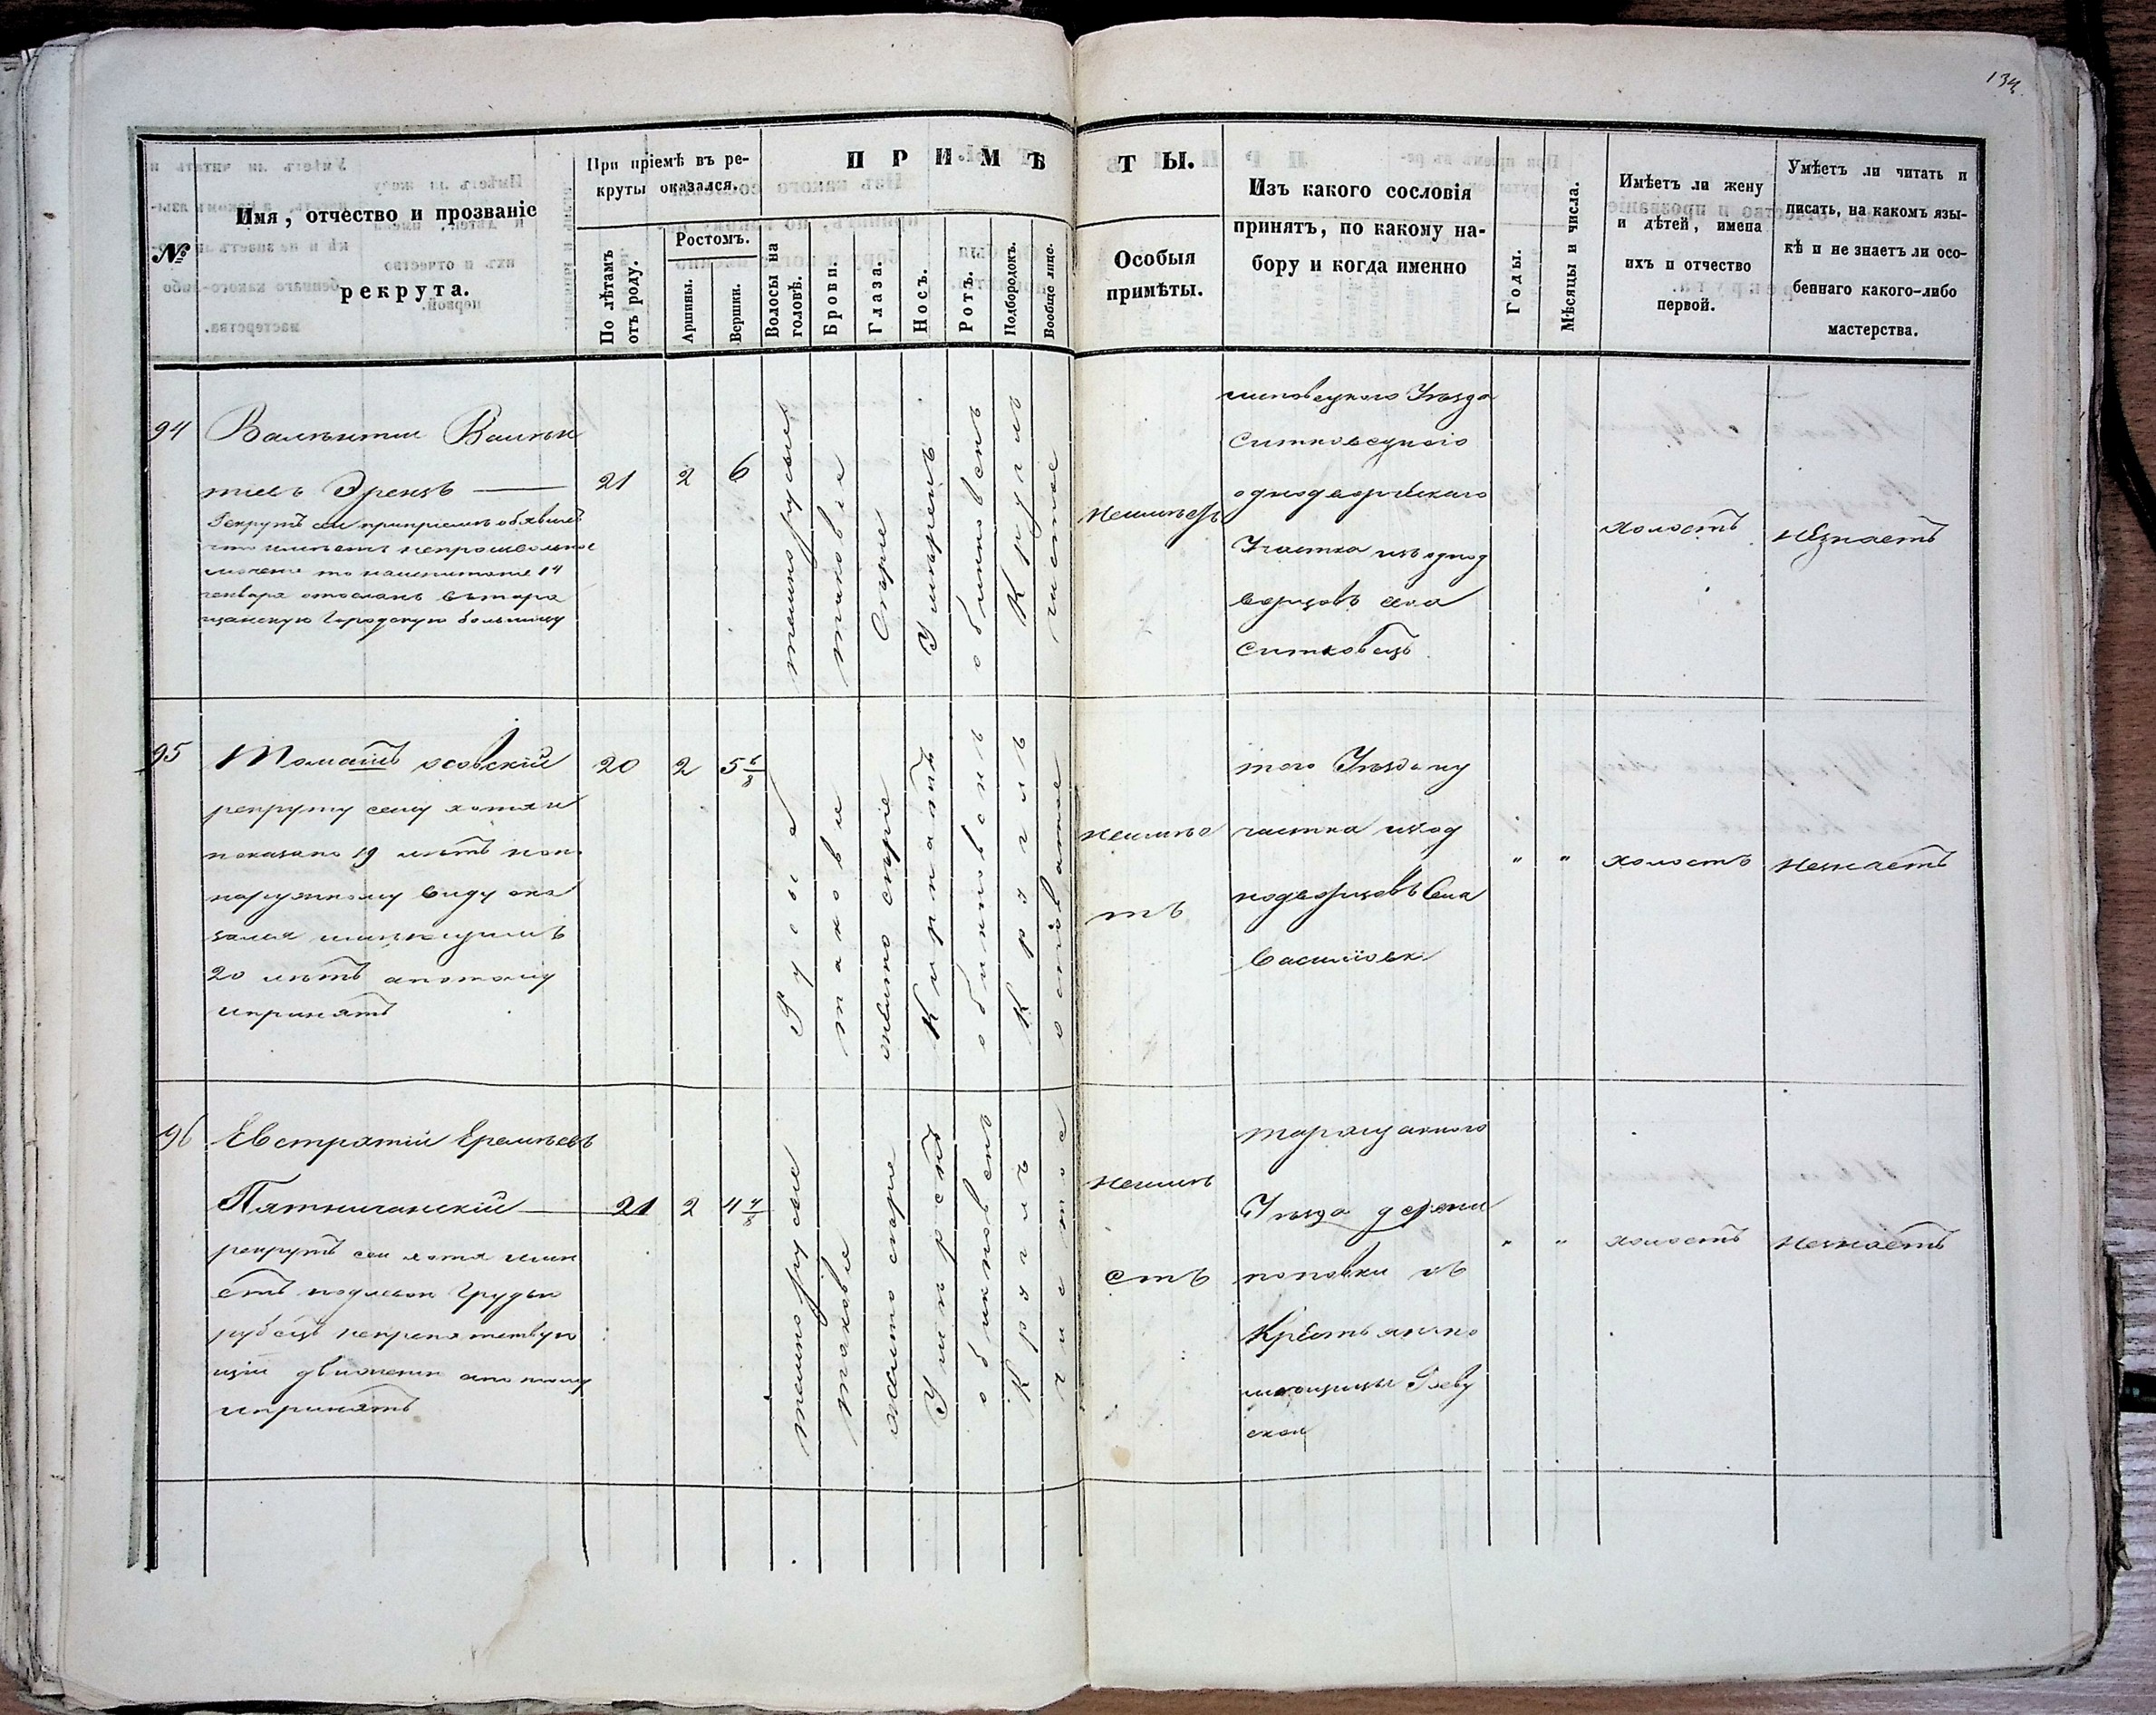 134.
№
Имя, отчество и прозваніе
рекрута.
При пріемѣ въ ре-
круты оказался.
По лѣтамъ
отъ роду.
Ростомъ.
Аршины.
Вершки.
ПРИМѢ
ТЫ.
Волосы на
головѣ.
Брови.
Глаза.
Носъ.
Ротъ.
Подбородокъ.
Вообще лице.
Особыя
примѣты.
Изъ какого сословія
принятъ, по какому на-
бору и когда именно
Годы.
Мѣсяцы и числа.
Имѣетъ ли жену
и дѣтей, имена
ихъ и отчество
первой.
Умѣетъ ли читать и
писать, на какомъ язы-
кѣ и не знаетъ ли осо-
беннаго какого-либо
мастерства.
94
Валентин Вален
тиевъ
Рекрутъ сей при пріемѣ объявилъ
что имѣетъ непроизвольное
14
генваря отосланъ въ тара
щанскую Городскую больницу
21
2
6
темнорусые
таковые
Сѣрые
Умѣрен
обыкновенъ
Круглъ
чистое
неимѣетъ
Уѣзда
Ситковецкого
однодворческаго
Участка изъ однод
ворцовъ села
Ситковецъ
холостъ
незнаетъ
95
Томашъ осовскій
рекруту сему хотя и
показано 19 лѣтъ но по
наружному виду ока
зался имѣющимъ
20 лѣтъ а потому
и принятъ
20
2
5 6/8
Русые
таковые
сѣрые
Курнатъ
обыкновенъ
Круглъ
осповатое
неимѣе
тъ
того Уѣзда и у
частка изъ од
нодворцовъ Села
Василіовк
"
"
холостъ
незнаетъ
96
Евстратій Еремѣевъ
Пятничанскій
рекрутъ сей хотя имѣ
етъ подлевою Грудью
рубецъ непрепятствую
щій движенію а потому
и принятъ
21
2
4 4/8
темнорусые
таковые
сѣрые
обыкновенъ
Круглъ
чистое
неимѣ
етъ
таращанского
Уѣзда дерени
поповки изъ
Крестьян по
мѣщицы Ржеву
ской
"
"
холостъ
незнаетъ